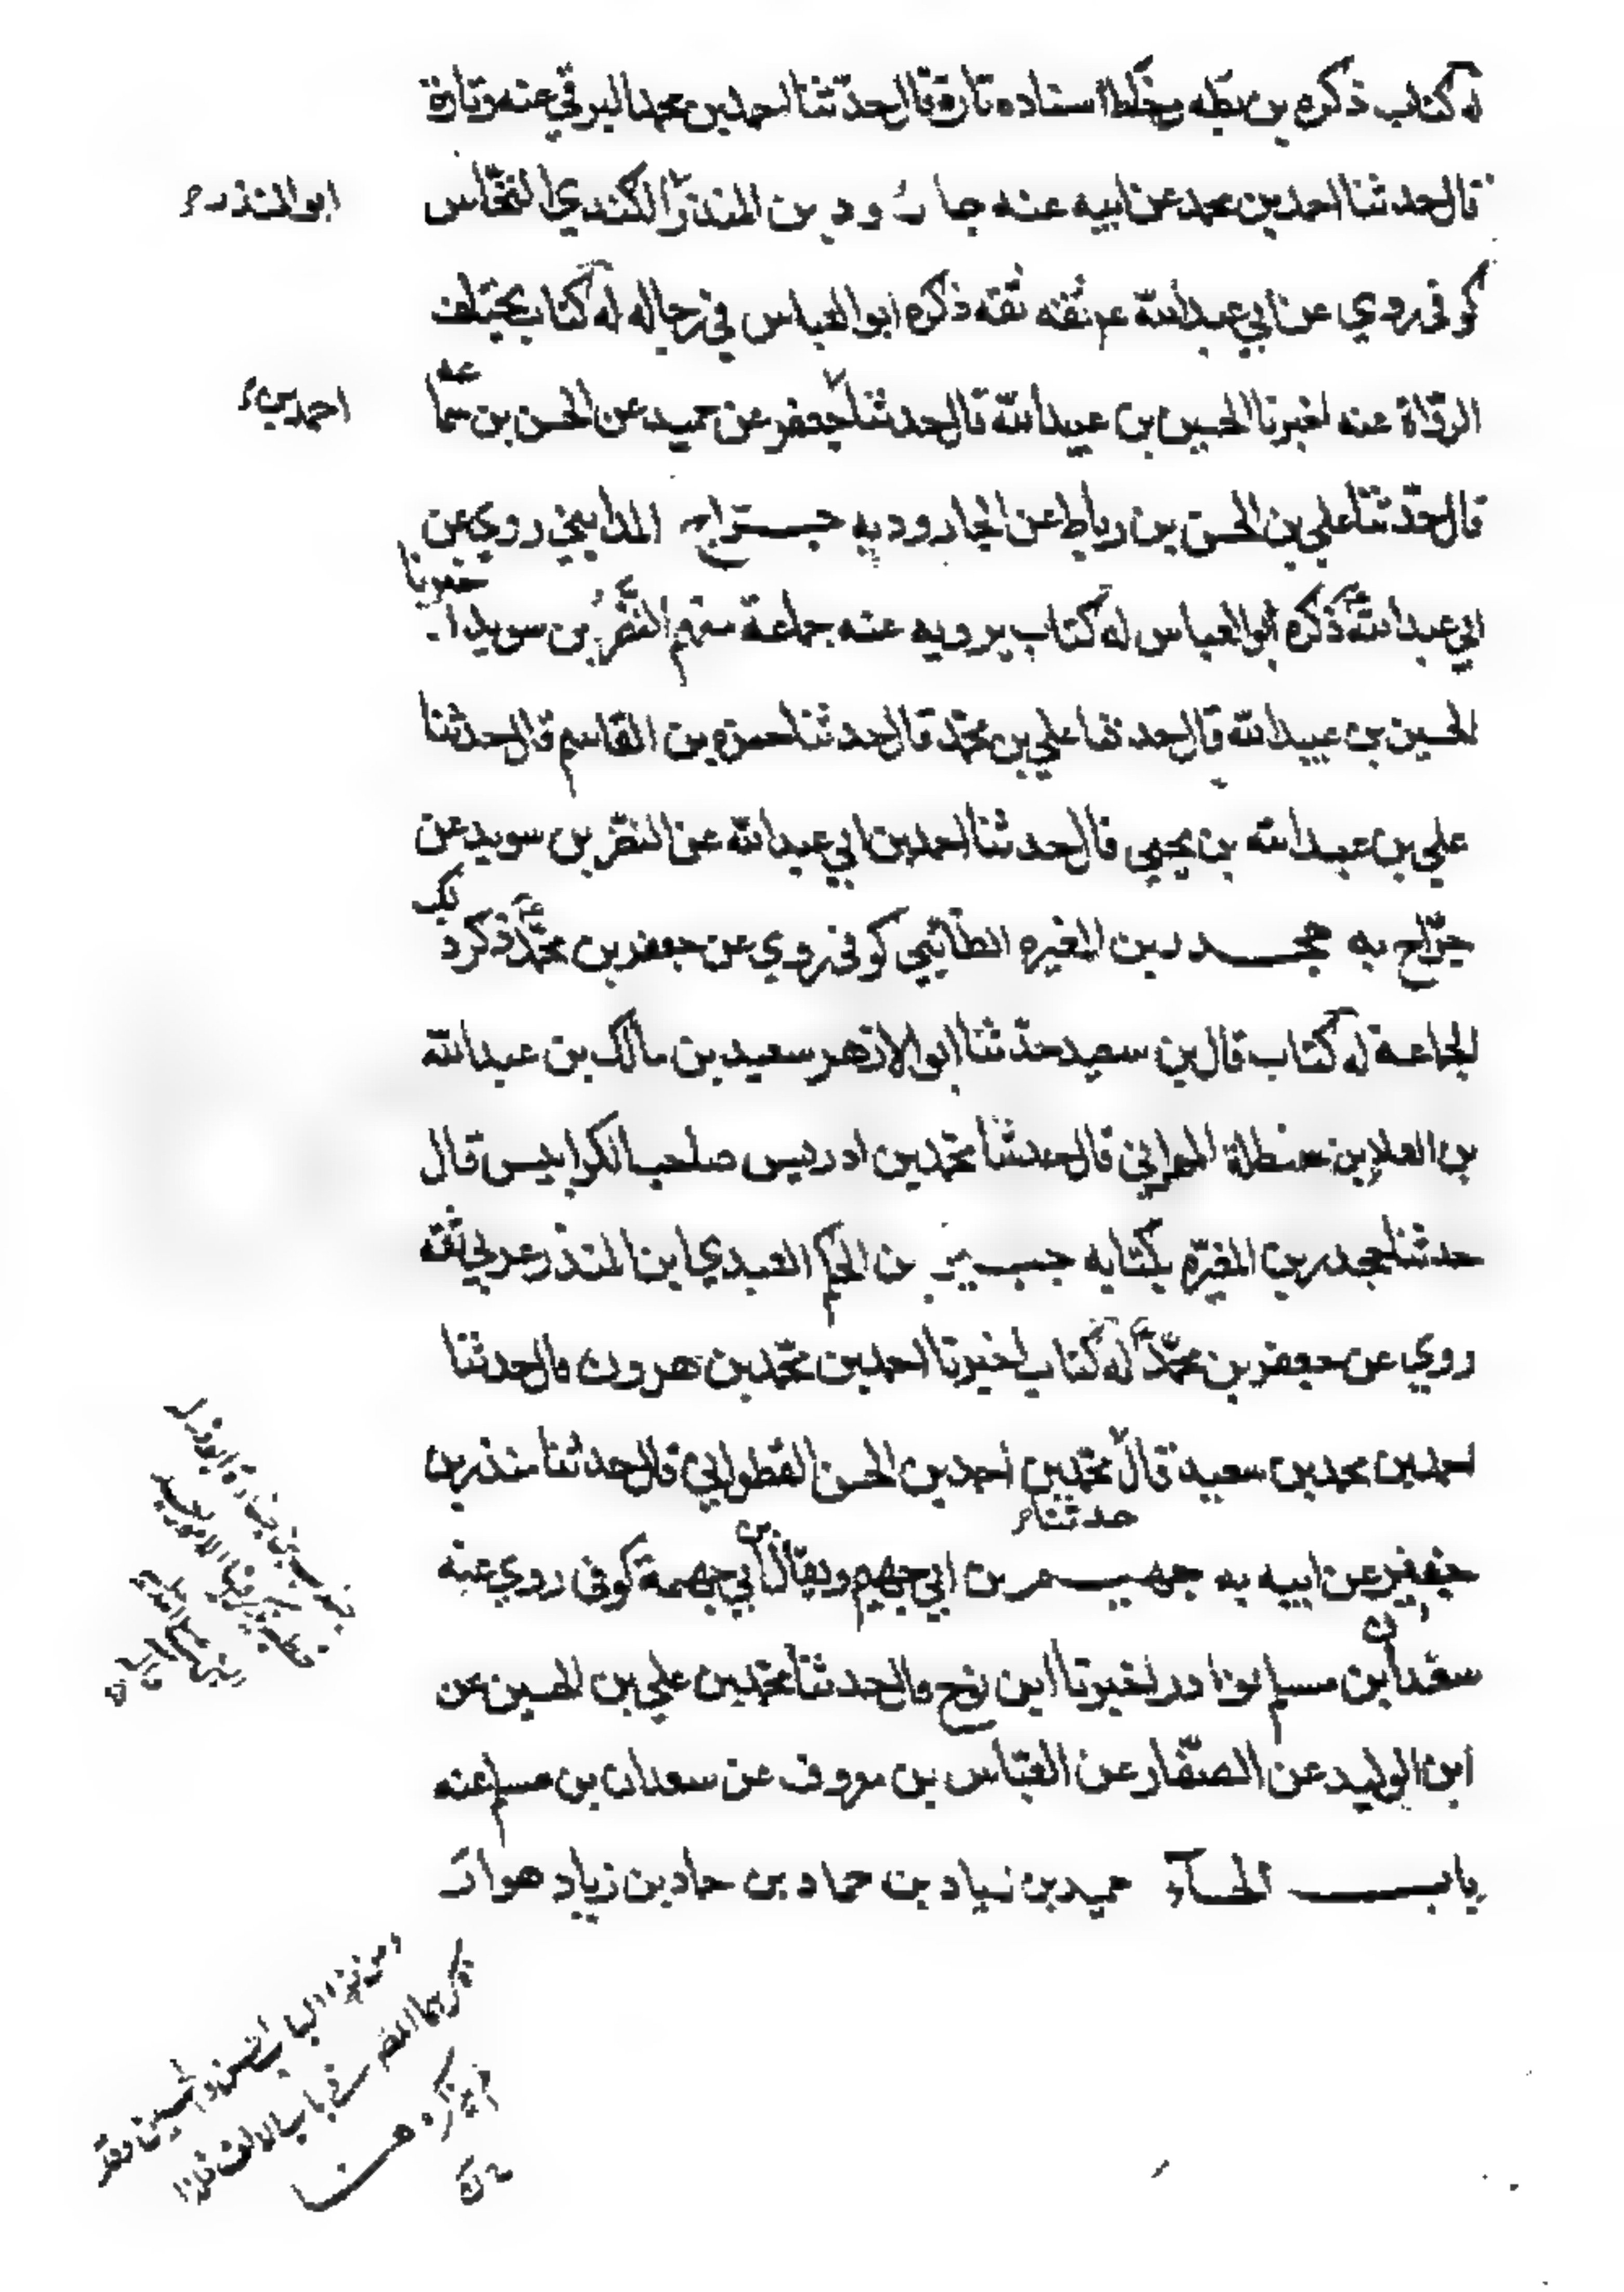 له كتاب ذكره بن بطه بخلط اسناده تارة قال حدّثنا احمد بن محمد البرقي عنه وتارة
قال حدثنا احمد بن محمد عن ابيه عنه جارُود بن المنذر الكندي النخّاس
ابو المنذر
كوفي روي عن ابي عبد الله عم ثقه ثقه ذكره ابو العباس في رجاله له كتاب يختلف
الروّاة عنه اخبرنا الحسين بن عبيد الله قال حدثنا جعفر عن حميد عن الحسن بن سماعة
احمد بن
قال حدّثنا علي بن الحسن بن رباط عن الجارود به جراح المدايني روي عن
ابي عبد الله ذكره ابو العباس له كتاب يرويه عنه جماعة منهم النضر بن سويد اخبرنا
الحسين بن عبيد الله قال حدثنا علي بن محمّد قال حدثنا حمزه بن القاسم قال حدثنا
علي بن عبد الله بن يحيى قال حدثنا احمد بن ابي عبد الله عن النضر بن سويد عن
جرّاح به جحدر بن المغيره الطائيي كوفي روي عن جعفر بن محمّد ذكر ذلك
الجماعة له كتاب قال بن سعيد حدّثنا ابو الازهر سعيد بن مالك بن عبد الله
بن العلا بن حنظلة الحراني قال حدثنا محمّد بن ادريس صاحب الكرابيس قال
حدثنا جحدر بن المغيّره بكتابه جيفر بن الحكم العبدي ابن المنذر عربي ثقه
روي عن جعفر بن محمّد له كتاب اخبرنا احمد بن محمّد بن هرون قال حدثنا
احمد بن محمد بن سعيد قال محمّد بن احمد بن الحسن القطواني قال حدثنا منذر بن
حدثنا
جيفر عن ابيه به جهيم بن ابي جهيم ويقال ابن ابي جهمة كوفي روي عنه
سعدان بن مسلم نوادر اخبرنا ابن نوح قال حدثنا محمّد بن علي بن الحسين عن
ابن الوليد عن الصفّار عن العبّاس بن معروف عن سعدان بن مسلم عنه
باب الحاء حميد بن زياد بن حماد بن حماد بن زياد هوار